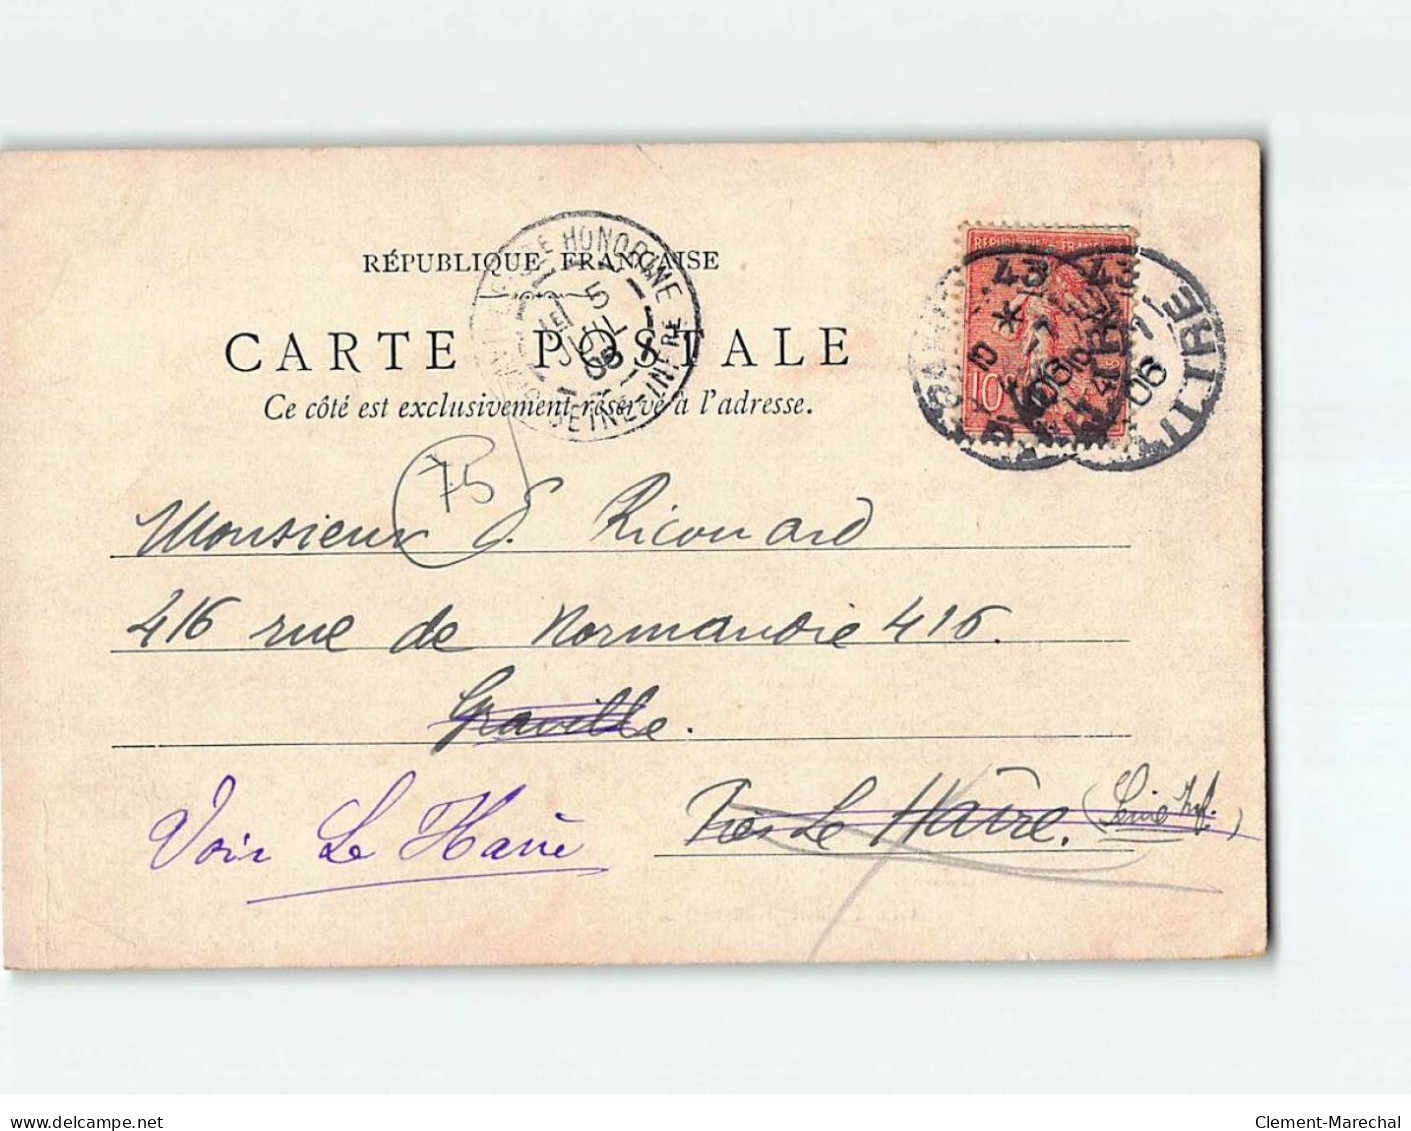 RÉPUBLIQUE FRANÇAISE
CARTE POSTALE
Ce côté est exclusivement réservé à l'adresse.
HONORINE
5
JUIL
SEINE INFRE
RÉPUBLIQUE FRANÇAISE
10
43
43
06
06
75
Monsieur E. Ricouard
416 rue de Normandie 416.
Graville.
Près Le Hâvre. (Seine Inf.)
Voir Le Havre
delcampe.net
Clement-Marechal